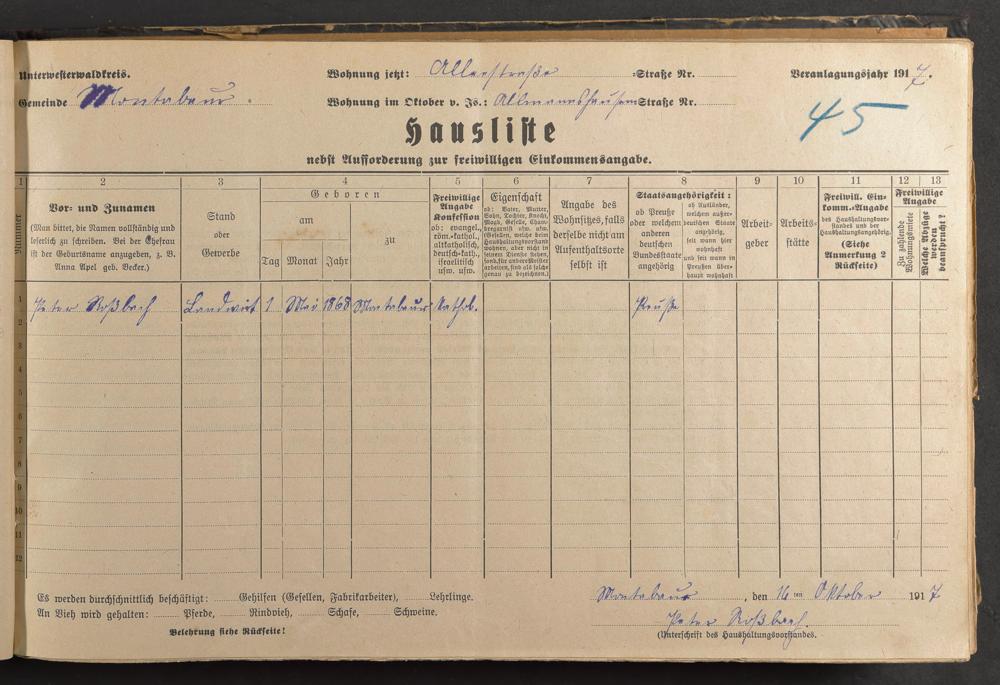 Unterwesterwaldkreis.
Wohnung jetzt: Allerstraße =Straße Nr.
Veranlagungsjahr 1917.
Gemeinde Montabaur.
Wohnung im Oktober v. Js.: Allmannshausen Straße Nr.
45
Hausliste
nebst Aufforderung zur freiwilligen Einkommensangabe.
1 2 3 4 5 6 7 8 9 10 11 12 13
Nummer
Vor- und Zunamen
(Man bittet, die Namen vollständig und
leserlich zu schreiben. Bei der Ehefrau
ist der Geburtsname anzugeben, z. B.
Anna Apel geb. Becker.)
Stand
oder
Gewerbe
Geboren
am
Tag Monat Jahr
zu
Freiwillige
Angabe
Konfession
ob: evangel.,
röm.-kathol.,
altkatholisch,
deutsch-kath.,
israelitisch
usw. usw.
Eigenschaft
ob: Vater, Mutter,
Sohn, Tochter, Knecht,
Magd, Geselle, Cham-
bregarnist usw. usw.
(Gesellen, welche beim
Haushaltungsvorstand
wohnen, aber nicht in
seinem Dienste stehen,
sond. für andere Meister
arbeiten, sind als solche
genau zu bezeichnen.)
Angabe des
Wohnsitzes, falls
derselbe nicht am
Aufenthaltsorte
selbst ist
Staatsangehörigkeit:
ob Preuße
oder welchem
anderen
deutschen
Bundesstaate
angehörig
ob Ausländer,
welchem außer-
deutschen Staate
angehörig,
seit wann hier
wohnhaft
und seit wann in
Preußen über-
haupt wohnhaft
Arbeit-
geber
Arbeits-
stätte
Freiwill. Ein-
komm.-Angabe
des Haushaltungsvor-
standes und der
Haushaltungsangehörig.
(Siehe
Anmerkung 2
Rückseite)
Freiwillige
Angabe
Zu zahlende
Wohnungsmiete
Welche Abzüge
werden
beansprucht?
1 Peter Roßbach Landwirt 1 Mai 1868 Montabaur Kathol. Preuße
2
3
4
5
6
7
8
9
10
11
12
Es werden durchschnittlich beschäftigt: Gehilfen (Gesellen, Fabrikarbeiter), Lehrlinge.
An Vieh wird gehalten: Pferde, Rindvieh, Schafe, Schweine.
Belehrung siehe Rückseite!
Montabaur, den 16ten Oktober 1917
Peter Roßbach.
(Unterschrift des Haushaltungsvorstandes.